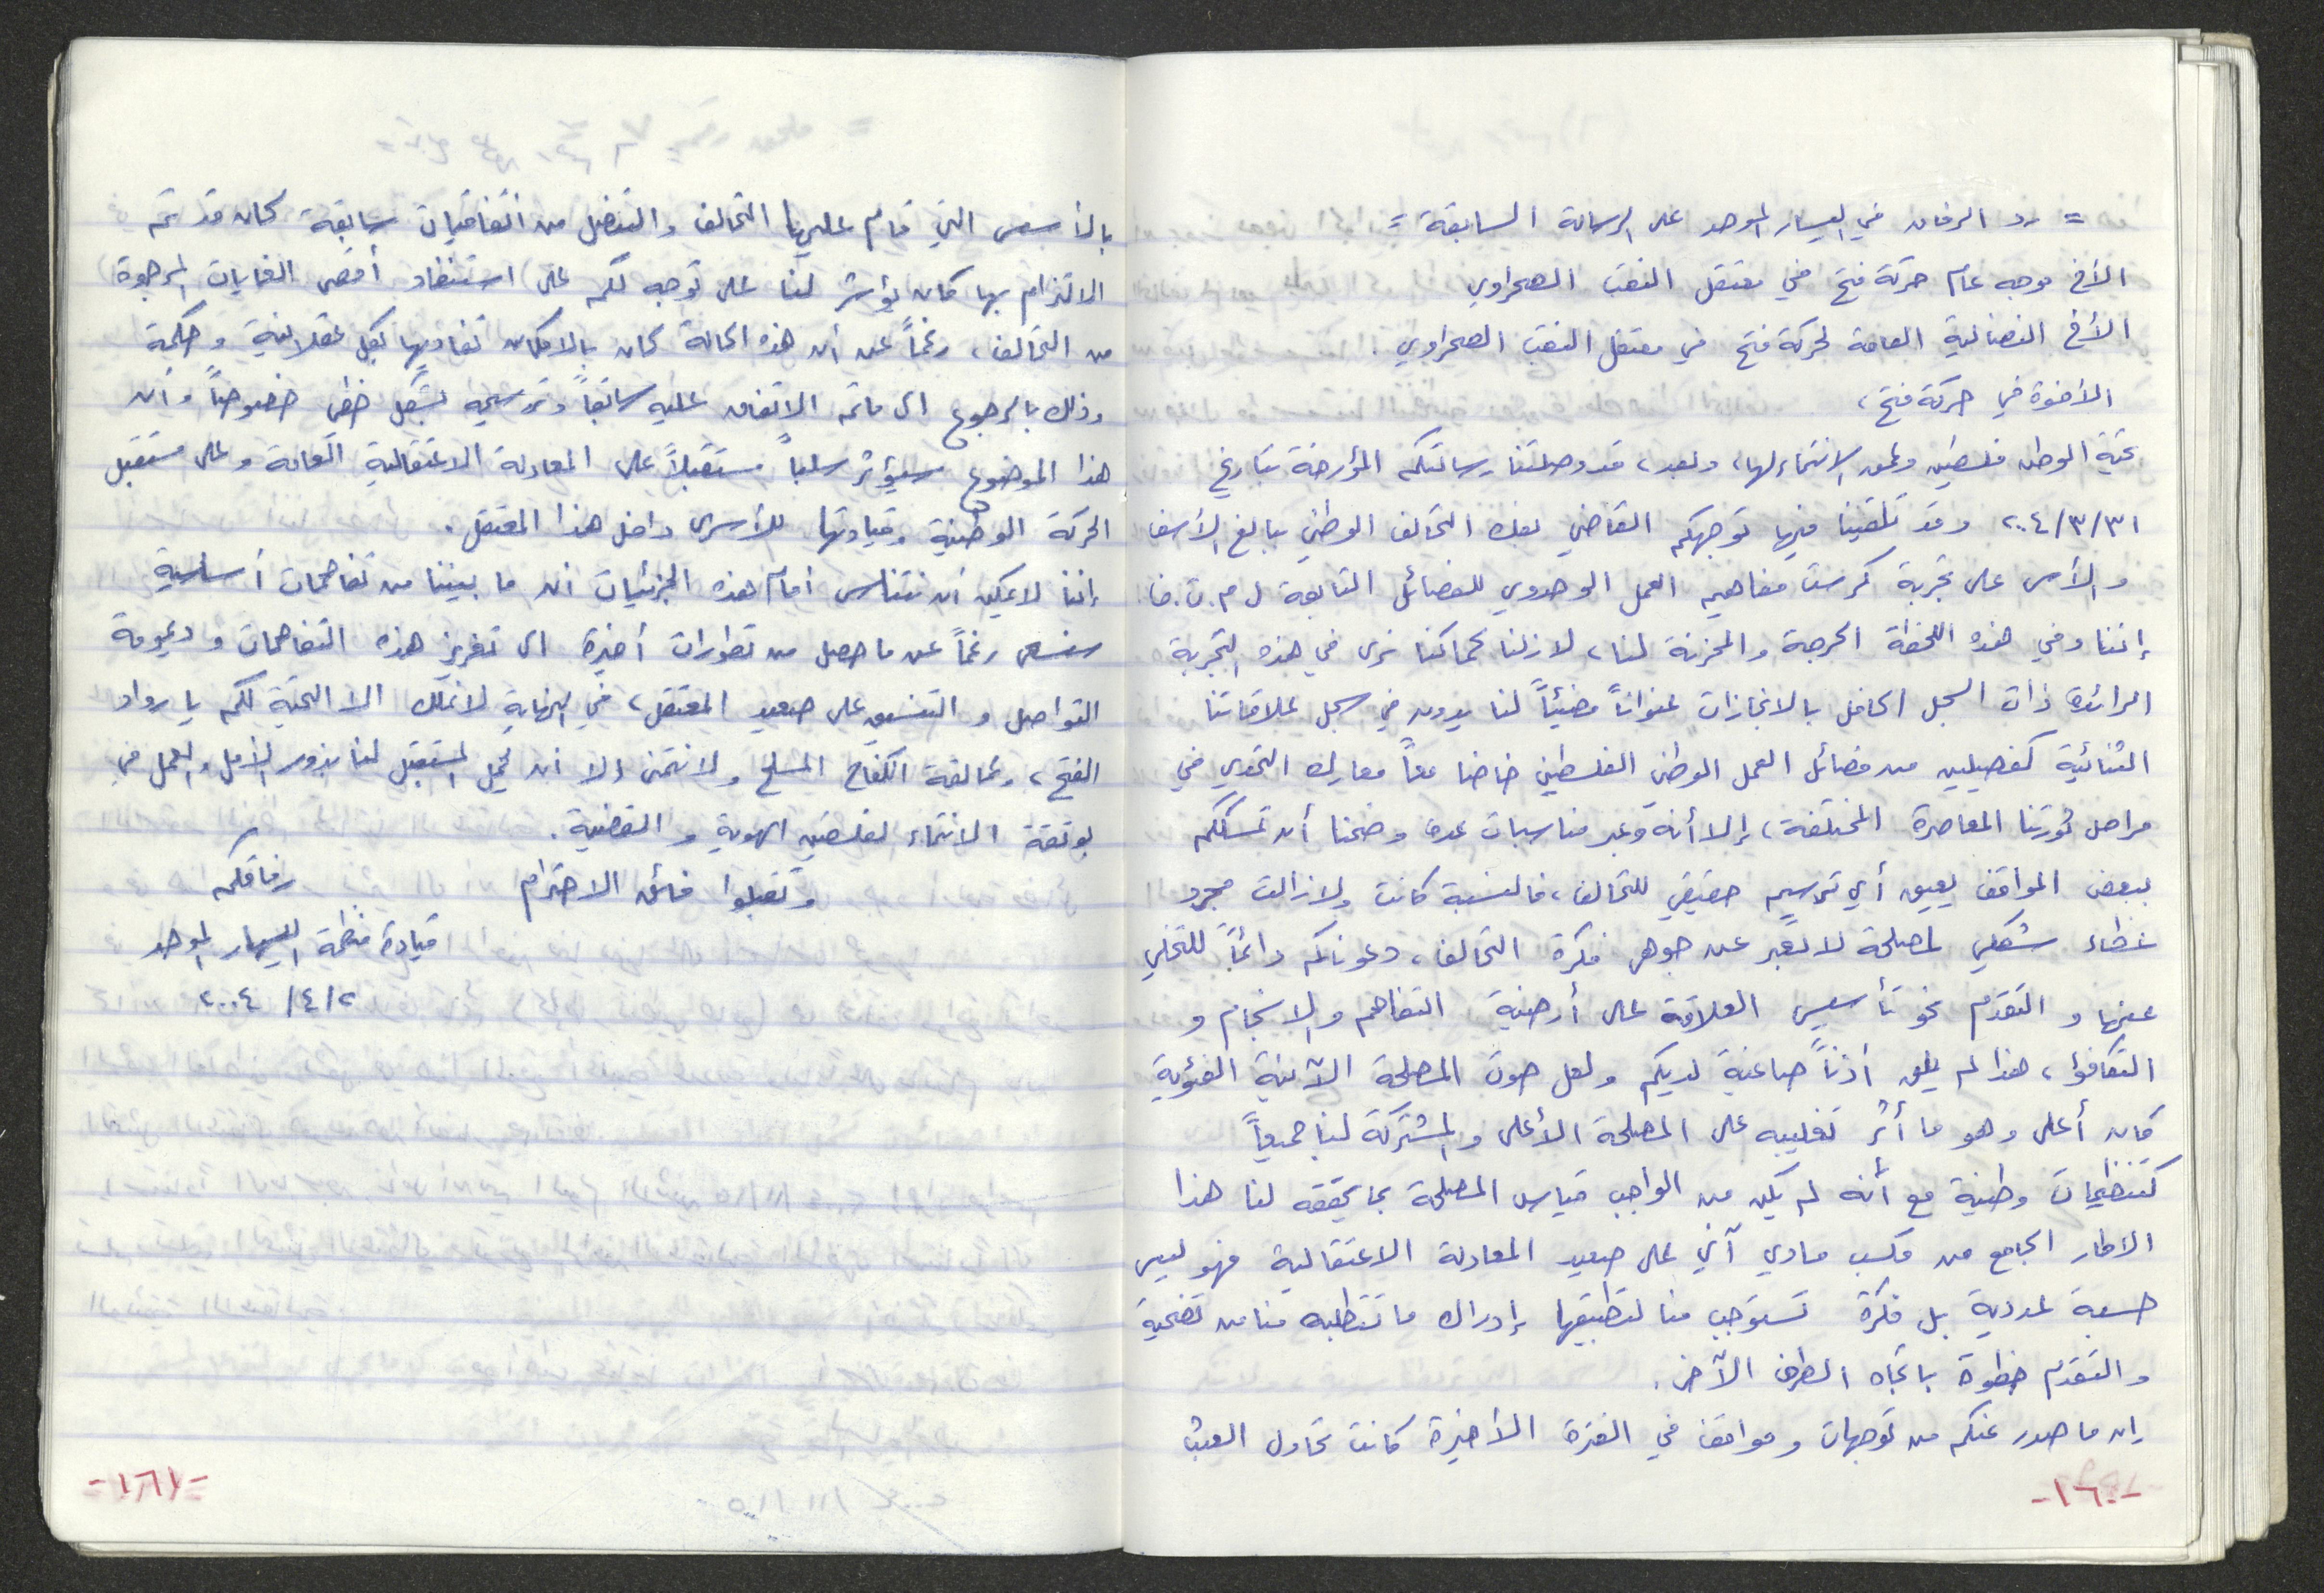 = رد الرفاق في اليسار الموحد على الرسالة السابقة =
الأخ موجه عام حركة فتح في معتقل النقب الصحراوي
الأخ النضالية العامة لحركة فتح في معتقل النقب الصحراوي .
الأخوة في حركة فتح ،
تحية الوطن فلسطين وعمق الانتماء لها ، وبعد ، قد وصلتنا رسالتكم المؤرخة بتاريخ
٢٠٠٤/٣/٣١ وقد تلقينا فيها توجهكم القاضي بفك التحالف الوطني ببالغ الأسف
والأسى على تجربة كرست مفاهيم العمل الوحدوي للفصائل التابعة ل م.ت.ف.
إننا وفي هذه اللحظة الحرجة والمحزنة لنا ، لا زلنا كما كنا نرى في هذه التجربة
الرائدة ذات السجل الحافل بالانجازات عنواناً مضيئاً لنا يدون في سجل علاقاتنا
الثنائية كفصيلين من فصائل العمل الوطني الفلسطيني خاضا معاً معارك التحدي في
مراحل ثورتنا المعاصرة المختلفة ، إلا أنه وعبر مناسبات عدة وضحنا أن تمسككم
ببعض المواقف يعيق أي ترسيم حقيقي للتحالف ، فالنسبة كانت ولا زالت مجرد
غطاء شكلي لمصلحة لا تعبر عن جوهر فكرة التحالف ، دعوناكم دائماً للتخلي
عنها والتقدم نحو تأسيس العلاقة على أرضية التفاهم والانسجام و
التكافؤ ، هذا لم يلق أذناً صاغية لديكم ولعل صوت المصلحة الآنية الفئوية
كان أعلى وهو ما أثر تغليبه على المصلحة الأعلى والمشتركة لنا جميعاً
كتنظيمات وطنية مع أنه لم يكن من الواجب قياس المصلحة بما يحققه لنا هذا
الاطار الجامع من مكسب مادي آني على صعيد المعادلة الاعتقالية فهو ليس
حسبة عددية بل فكرة تستوجب منا لتطبيقها إدراك ما تتطلبه منا من تضحية
والتقدم خطوة باتجاه الطرف الآخر .
إن ما صدر عنكم من توجهات ومواقف في الفترة الأخيرة كانت تحاول العبث
-١٦٠-
بالأسس التي قام عليها التحالف والتنصل من اتفاقيات سابقة كان قد تم
الالتزام بها كان يؤشر لنا على توجه لكم على (استنفاد أقصى الغايات المرجوة)
من التحالف ، رغماً عن أن هذه الحالة كان بالامكان تفاديها بكل عقلانية وحكمة
وذلك بالرجوع الى ما تم الاتفاق عليه سابقاً وترسيمه بشكل خطي خصوصاً وأن
هذا الموضوع سيؤثر سلباً مستقبلاً على المعادلة الاعتقالية العامة وعلى مستقبل
الحركة الوطنية وقيادتها للأسرى داخل هذا المعتقل .
إننا لا يمكن أن نتناسى أمام هذه الجزئيات ان ما بيننا من تفاهمات أساسية
سنسعى رغماً عن ما حصل من تطورات أخيرة الى تعزيز هذه التفاهمات وديمومة
التواصل والتنسيق على صعيد المعتقل ، في النهاية لا نملك الا التحية لكم يا رواد
الفتح ، وعمالقة الكفاح المسلح ولا نتمنى إلا ان يحمل المستقبل لنا بذور الأمل والعمل في
بوتقة الانتماء لفلسطين الهوية والقضية .
وتقبلوا فائق الاحترام رفاقكم
قيادة منظمة اليسار الموحد
٢٠٠٤/٤/٢
=١٦١=